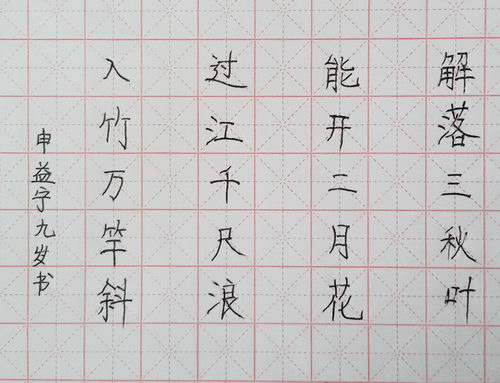 解落三秋叶
能开二月花
过江千尺浪
入竹万竿斜
申益宇九岁书